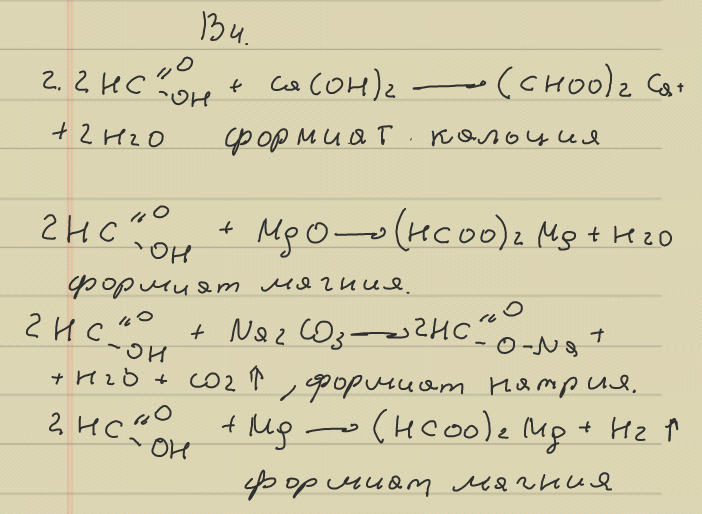 В4.
2. 2HC=O-OH + Ca(OH)2 → (CHOO)2 Ca+
+ 2H2O формиат кальция
2HC=O-OH + MgO → (HCOO)2 Mg + H2O
формиат магния.
2HC=O-OH + Na2CO3 → 2HC=O-O-Na +
+ H2O + CO2↑, формиат натрия.
2HC=O-OH + Mg → (HCOO)2 Mg + H2↑
формиат магния